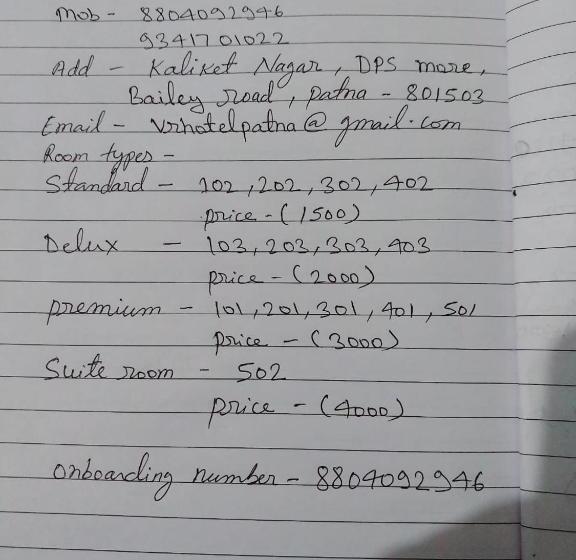 Mob - 8804092946
9341701022
Add - Kaliket Nagar, DPS more,
Bailey road, patna - 801503
Email - vrhotelpatna@gmail.com
Room types -
Standard - 102, 202, 302, 402
price - (1500)
Delux - 103, 203, 303, 403
price - (2000)
premium - 101, 201, 301, 401, 501
price - (3000)
Suite room - 502
price - (4000)
onboarding number - 8804092946